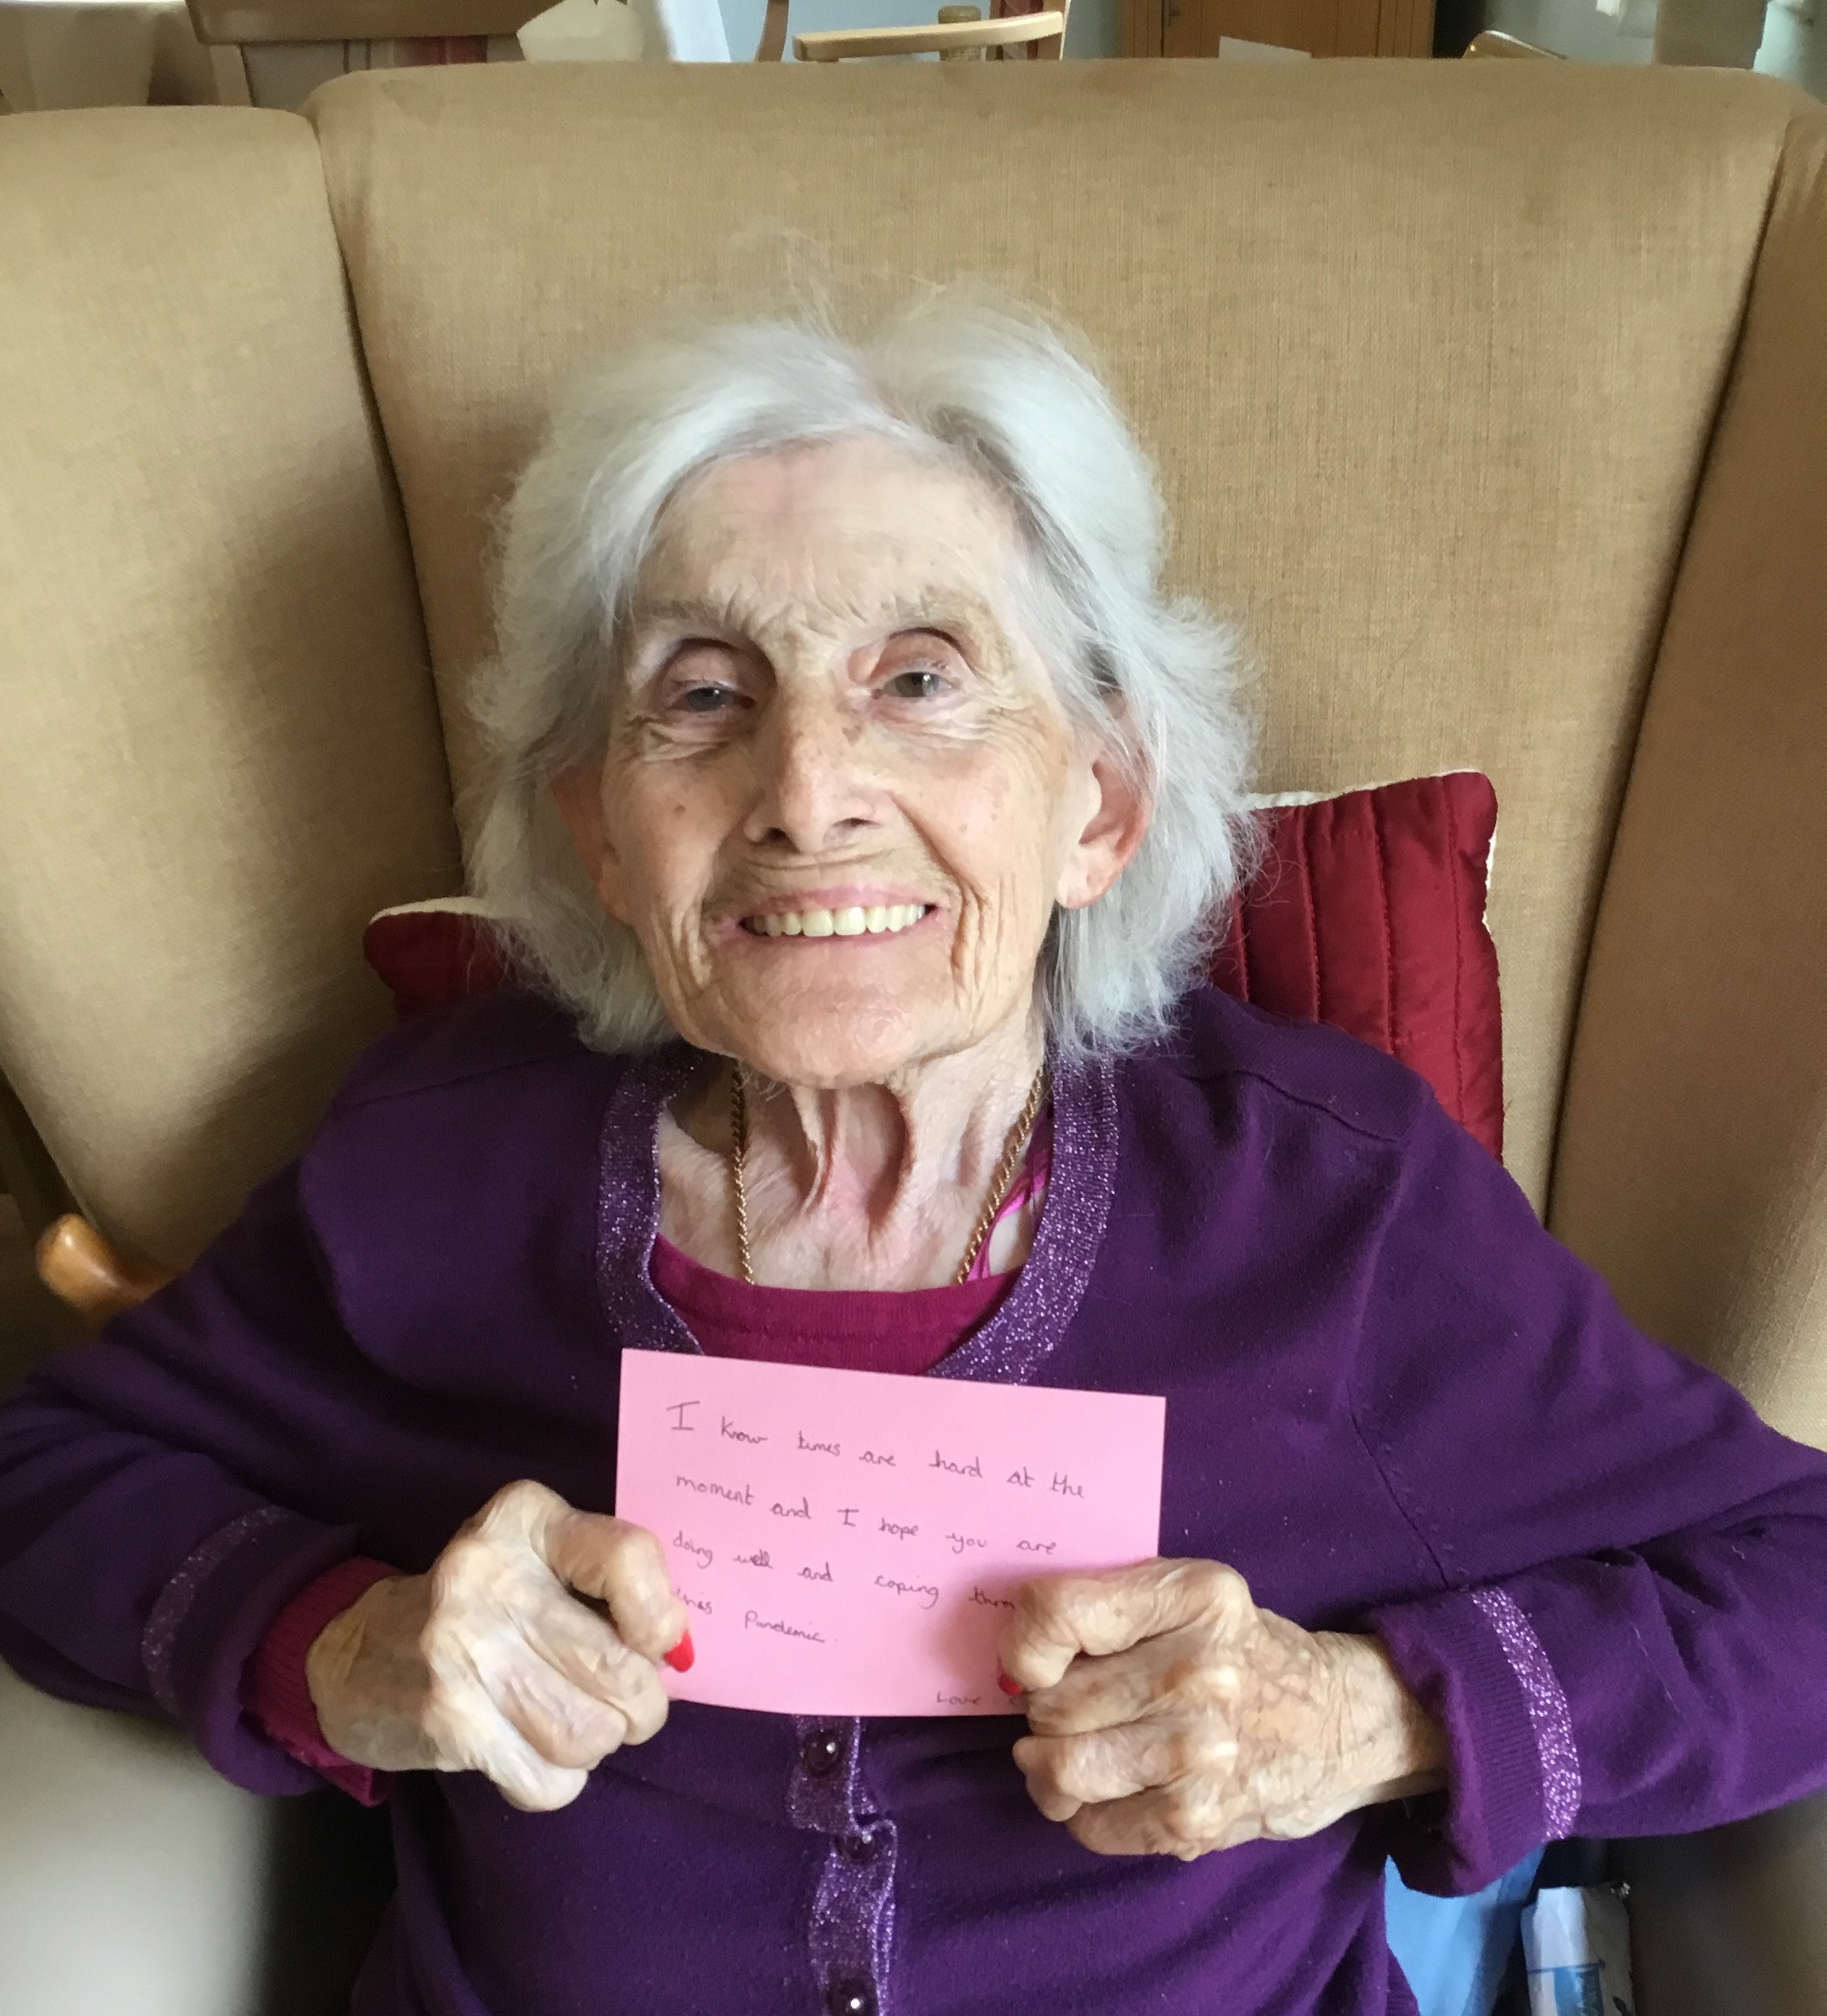 I know times are hard at the
moment and I hope you are
doing well and coping thro
this Pandemic.
Love